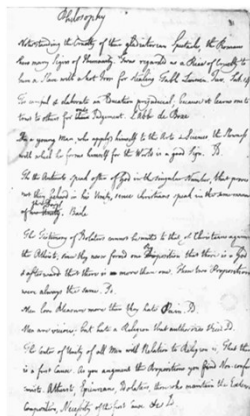 Philosophy
Notwithstanding the Cruelty of their Gladiatorian Spectacles, the Romans
have many Signs of Humanity. Twas regarded as a Piece of Cruelty to
burn a Slave with a hot Iron for stealing Table Linnen. Juv. Sat. 14
Too careful & elaborate an Education prejudicial; because it learns one
to trust to others for their Judgement. L'Abbé de Bos
If a young Man who applys himself to the Arts & Sciences the Slowness
with which he forms himself for the World is a good Sign. Id.
The Antients speak often of God in the singular Number, that proves
not they believd in his Unity, since Christians speak in the same manner
of the Devil. Baile
The Testimony of Idolaters cannot be united to that of Christians against
the Atheists, since they never formd one Proposition that there is a God
& afterward that there is no more than one. These two Propositions
were always the same. Id.
Men love Pleasure more than they hate Pain. Id.
Men are vicious, but hate a Religion that authorizes Vice. Id.
The Center of Unity of all Men with Relation to Religion is, That there
is a first Cause. As you augment the Propositions you find Non-confor
mists. Atheists, Epicureans, Idolaters, those who maintain the Extension,
Composition, Necessity of the first Cause, &c. Id.